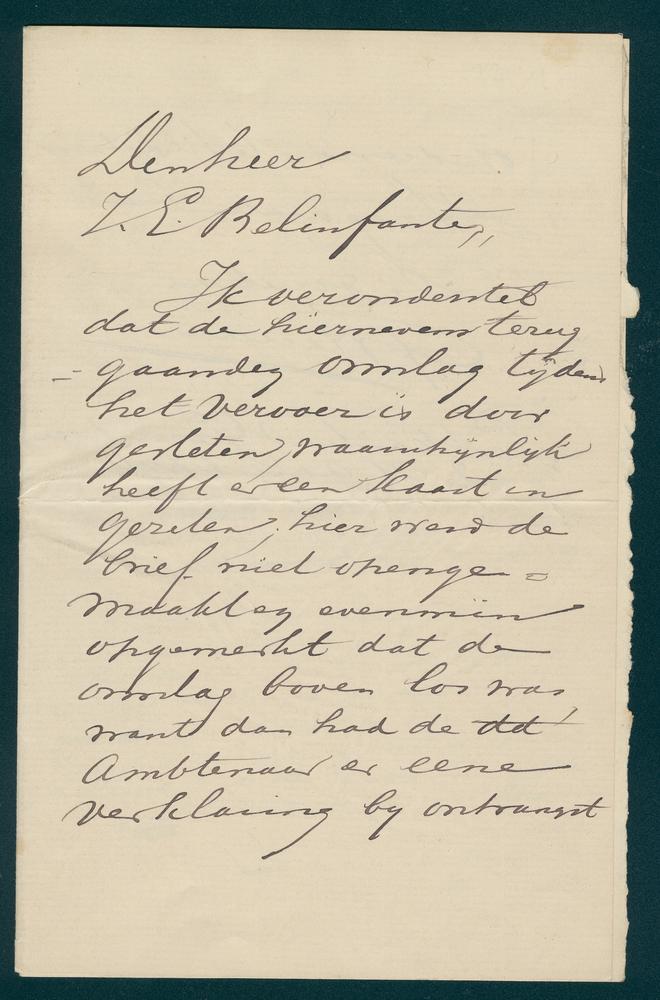 Den heer
J. E. Belinfante,,
Ik veronderstel
dat de hiernevens terug
- gaanden omslag tijdens
het vervoer is door
gesleten, waarschijnlijk
heeft er een kaart in
gezeten; hier werd de
brief niet openge=
maakt en evenmin
opgemerkt dat de
omslag boven los was,
want dan had de dd
Ambtenaar er eene
verklaring by ontvangst